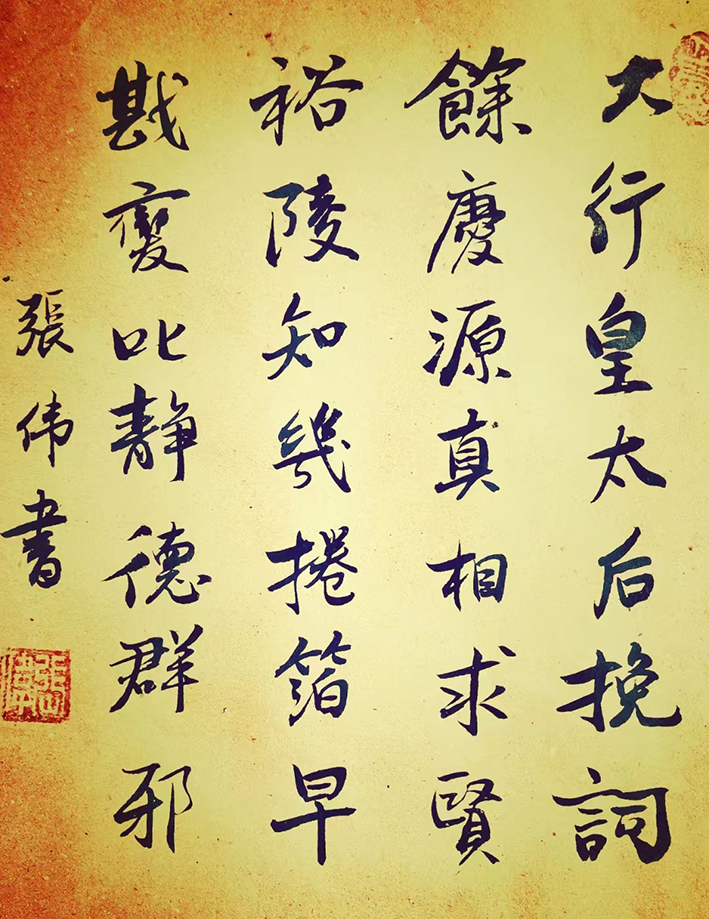 大行皇太后挽詞
餘慶源真相求賢
裕陵知幾捲箔早
戡變叱静德群邪
張伟書